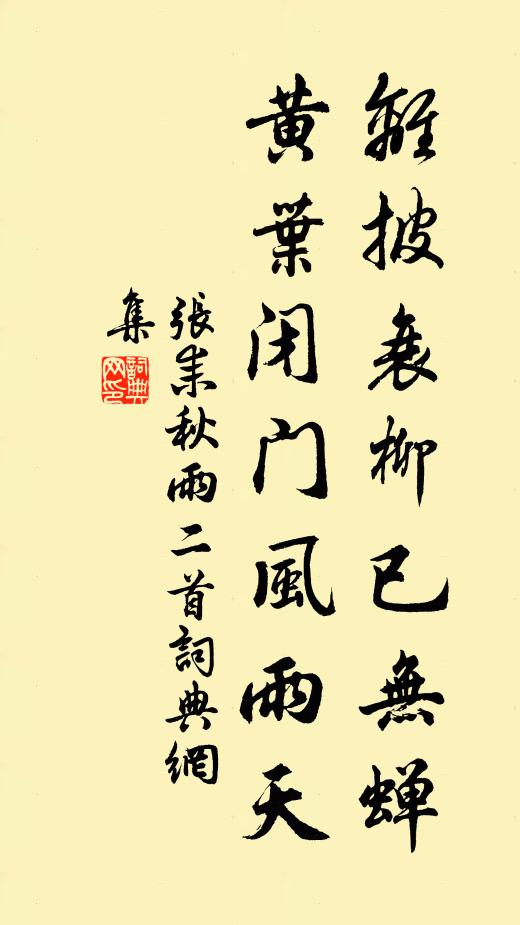 離披衰柳已無蝉
黄葉闭門風雨天
張耒秋雨二首詞典網
集
詞典
网印